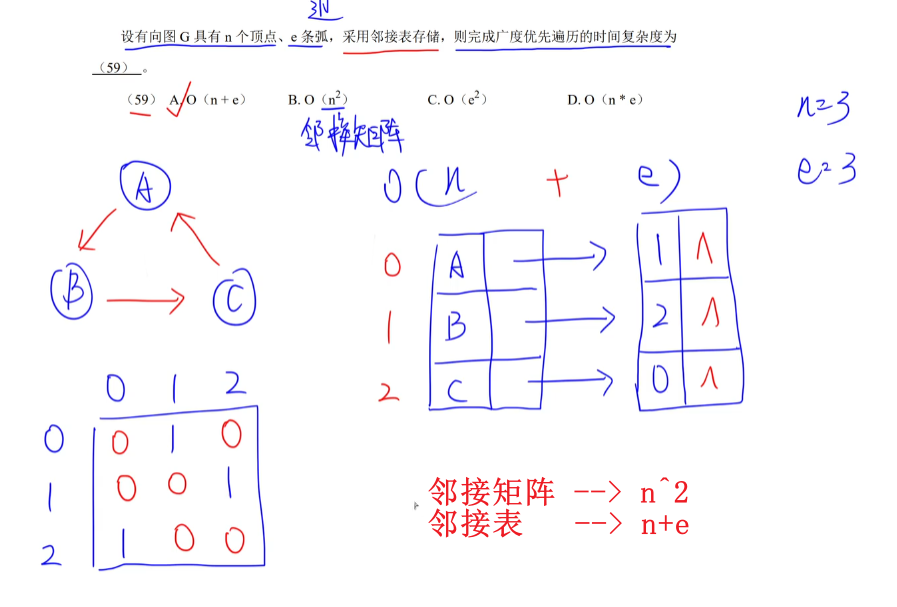 边
设有向图 G 具有 n 个顶点、e 条弧，采用邻接表存储，则完成广度优先遍历的时间复杂度为
（59） 。
（59） A. O（n + e） B. O（n²） C. O（e²） D. O（n * e）
n=3
邻接矩阵
e=3
A
O(n + e)
0 A 1 ∧
B C
1 B 2 ∧
2 C 0 ∧
0 1 2
0 0 1 0
1 0 0 1
2 1 0 0
邻接矩阵 --> n^2
邻接表 --> n+e